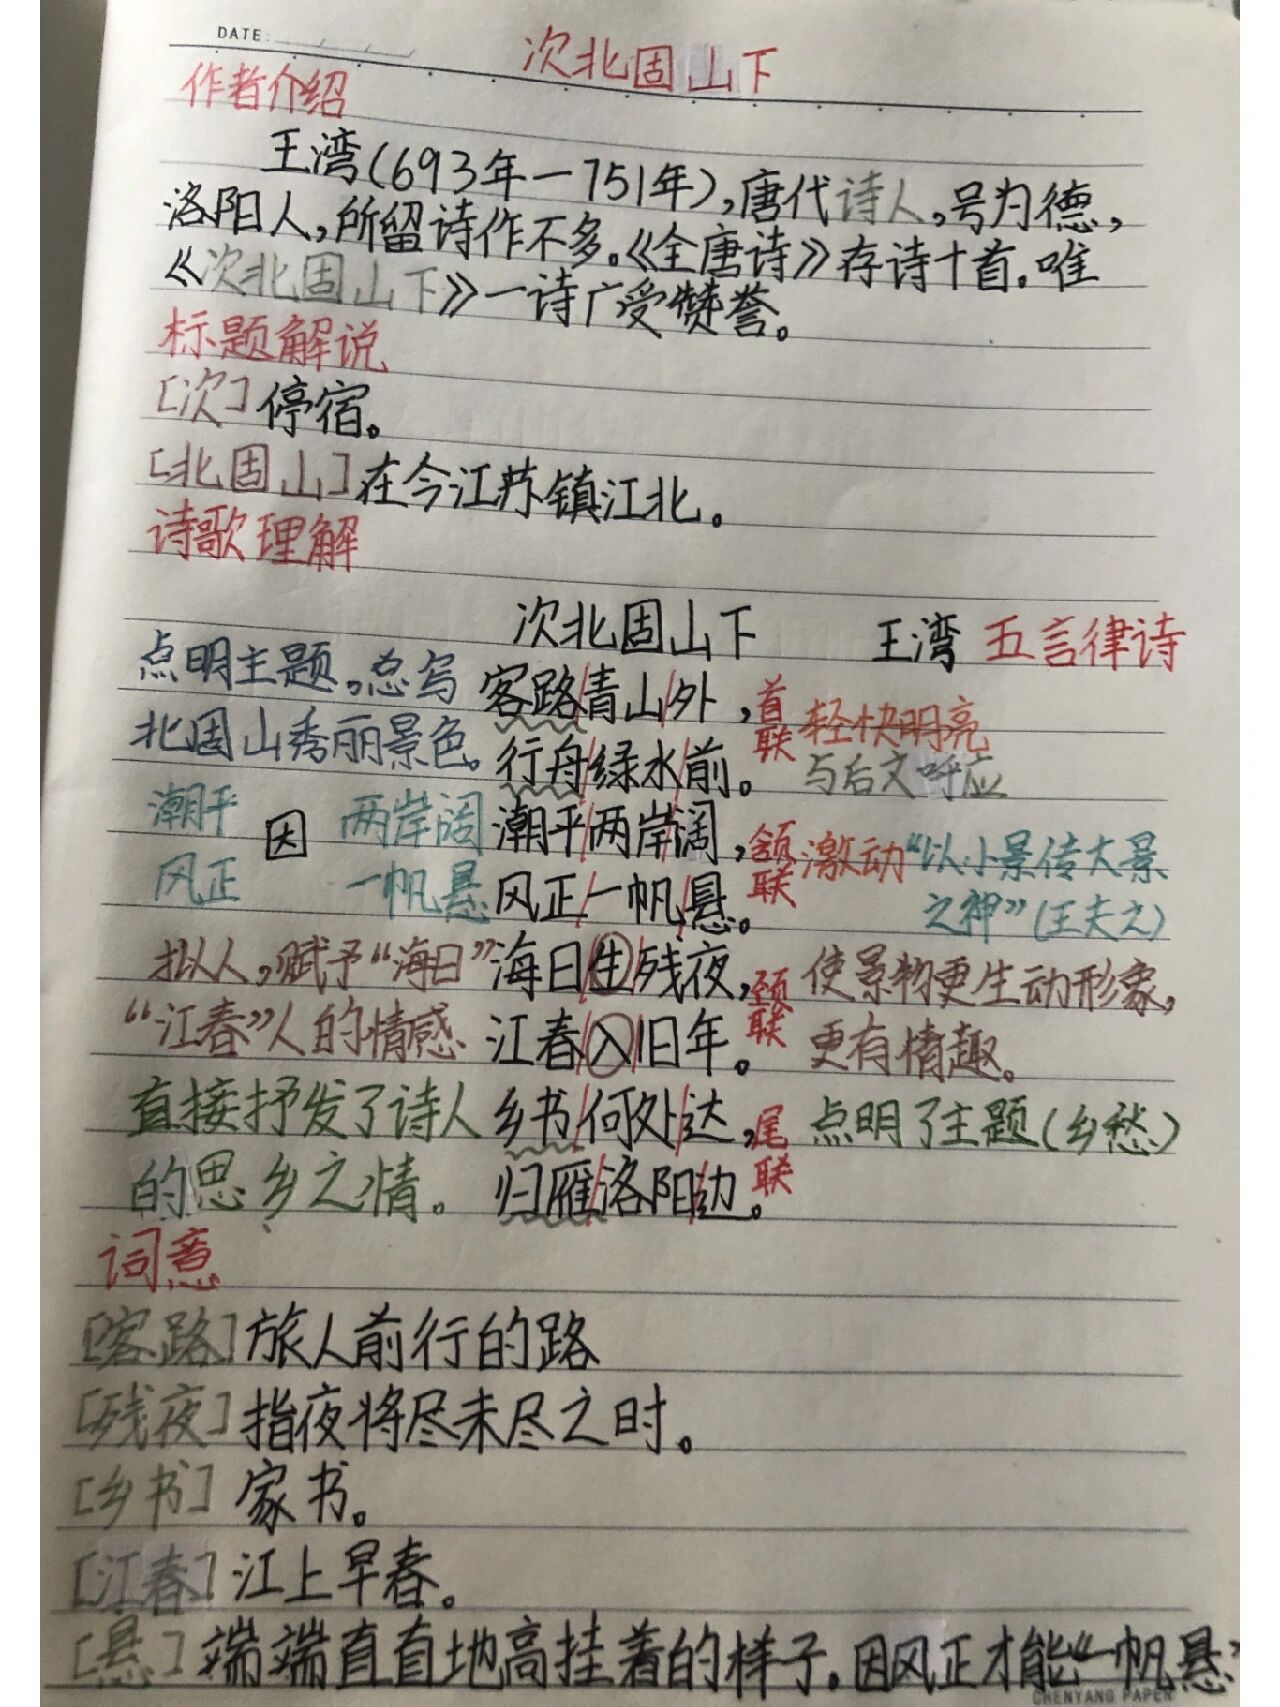 DATE:
次北固山下
作者介绍
王湾(693年一751年),唐代诗人,号为德,
洛阳人,所留诗作不多。《全唐诗》存诗十首.唯
《次北固山下》一诗广受赞誉。
标题解说
[次]停宿。
[北固山]在今江苏镇江北。
诗歌理解
次北固山下 王湾 五言律诗
点明主题。总写 客路/青山/外, 首 轻快明亮
北固山秀丽景色。 行舟/绿水/前。 联 与后文呼应
潮平 因 两岸阔 潮平/两岸/阔, 颔 激动“以小景传大景
风正 一帆悬 风正/一帆/悬。 联 之神”(王夫之)
拟人,赋予“海日” 海日/生/残夜, 颈 使景物更生动形象,
“江春”人的情感 江春/入/旧年。 联 更有情趣。
直接抒发了诗人 乡书/何处/达, 尾 点明了主题(乡愁)
的思乡之情。 归雁/洛阳/边。 联
词意
[客路]旅人前行的路
[残夜]指夜将尽未尽之时。
[乡书]家书。
[江春]江上早春。
[悬]端端直直地高挂着的样子.因风正才能“一帆悬”
CHENYANG PAPER